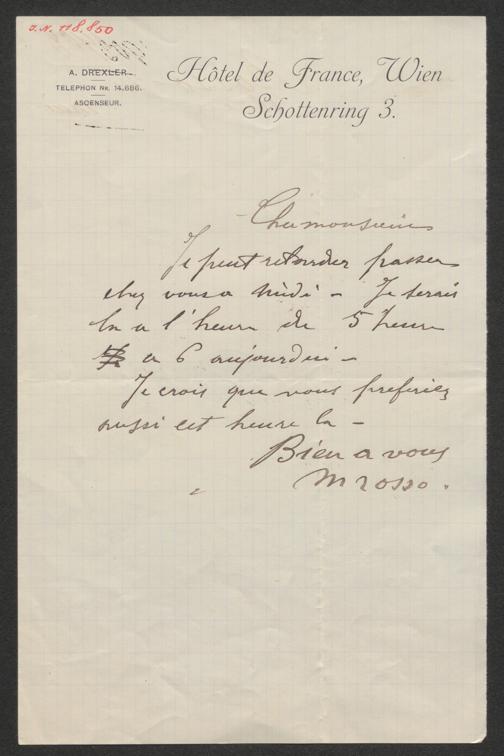 J.N. 118.850
A. DREXLER
TELEPHON NR. 14.686.
ASCENSEUR.
Hôtel de France, Wien
Schottenring 3.
Cher monsieur
Je peut retarder passer
chez vous a midi – Je serais
la a l'heure de 5 heure
a 6 aujourdui –
Je crois que vous preferiez
aussi cet heure la –
Bien a vous
M rosso.